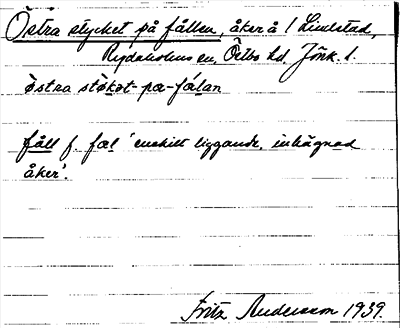 Östra stycket på fållen, åker å 1 Lindstad,
Rydaholms sn, Östbo hd. Jönk. l.
östra støkət-pa-fálan
fåll f. fæl 'enskilt liggande, inhägnad
åker'.
Fritz Andersson 1939.